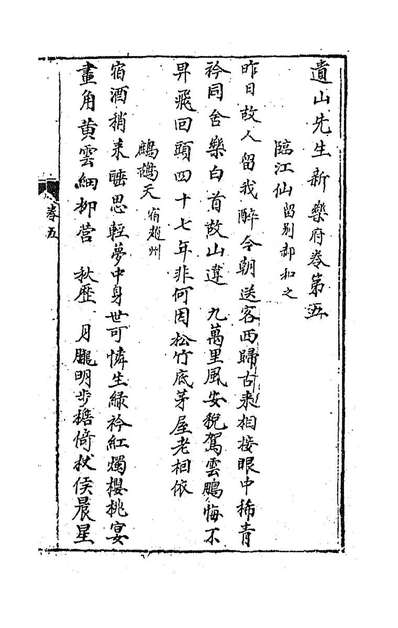 遺山先生新樂府卷第五
臨江仙留别郝和之
昨日故人留我醉今朝送客西歸古來相接眼中稀青
衿同舍樂白首故山違　九萬里風安稅駕雲鵬悔不
卑飛回頭四十七年非何因松竹底茅屋老相依
鷓鴣天宿趙州
宿酒稍來睡思輕夢中身世可憐生綠衿紅燭櫻桃宴
畫角黄雲細柳營　秋歷　月朧明步檐倚杖侯晨星
卷五